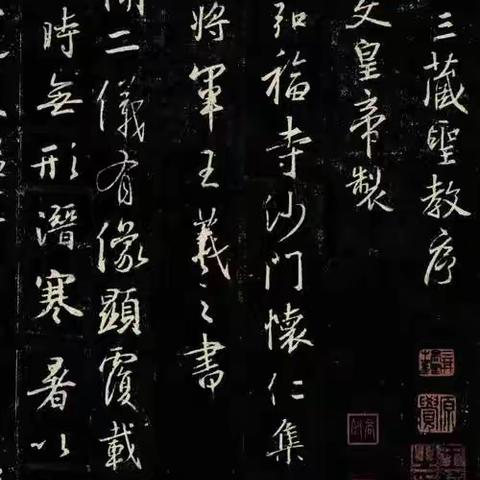 三藏聖教序
文皇帝製
弘福寺沙門懷仁集
將軍王羲之書
聞二儀有像顯覆載
時無形潛寒暑以